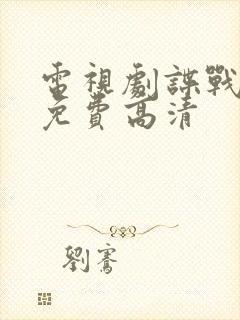 電視劇諜戰
免費高清
劉騫